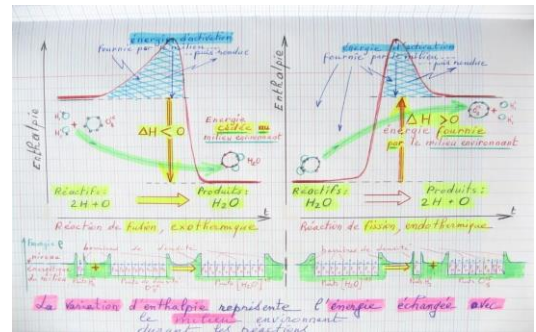 énergie d'activation
fournie par le milieu...
...puis rendue
Enthalpie
ΔH < 0
Energie
cédée au
milieu environnant
H₂O
Réactifs:
2H + O
Produits:
H₂O
t
Réaction de fusion, exothermique
énergie d'activation
fournie par le milieu...
...puis rendue
Enthalpie
ΔH > 0
énergie fournie
par le milieu environnant
Réactifs:
H₂O
Produits:
2H + O
t
Réaction de fission, endothermique
Energie
niveau
énergétique
du milieu
La variation d'enthalpie représente l'énergie échangée avec
le milieu environnant
durant les réactions